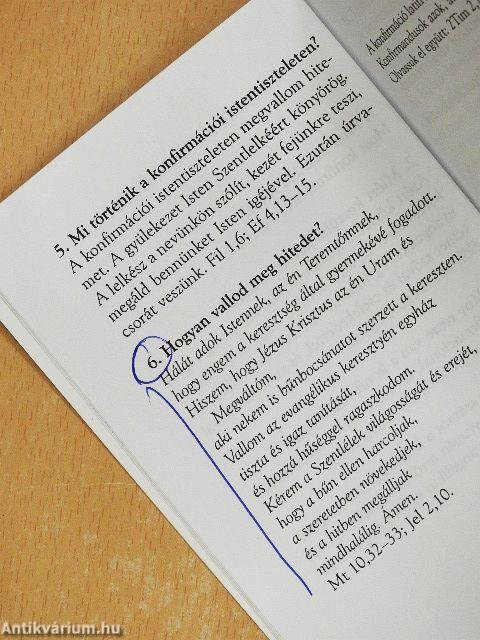 A konfirmáció latin
Konfirmandusok azok, a
Olvassuk el együtt: 2Tim 2,
5. Mi történik a konfirmációi istentiszteleten?
A konfirmációi istentiszteleten megvallom hite-
met. A gyülekezet Isten Szentlelkéért könyörög.
A lelkész a nevünkön szólít, kezét fejünkre teszi,
megáld bennünket Isten igéjével. Ezután úrva-
csorát veszünk. Fil 1,6; Ef 4,13–15.
6. Hogyan vallod meg hitedet?
Hálát adok Istennek, az én Teremtőmnek,
hogy engem a keresztség által gyermekévé fogadott.
Hiszem, hogy Jézus Krisztus az én Uram és
Megváltóm,
aki nekem is bűnbocsánatot szerzett a kereszten.
Vallom az evangélikus keresztyén egyház
tiszta és igaz tanítását,
és hozzá hűséggel ragaszkodom.
Kérem a Szentlélek világosságát és erejét,
hogy a bűn ellen harcoljak,
a szeretetben növekedjek,
és a hitben megálljak
mindhalálig. Ámen.
Mt 10,32–33; Jel 2,10.
Antikvárium.hu